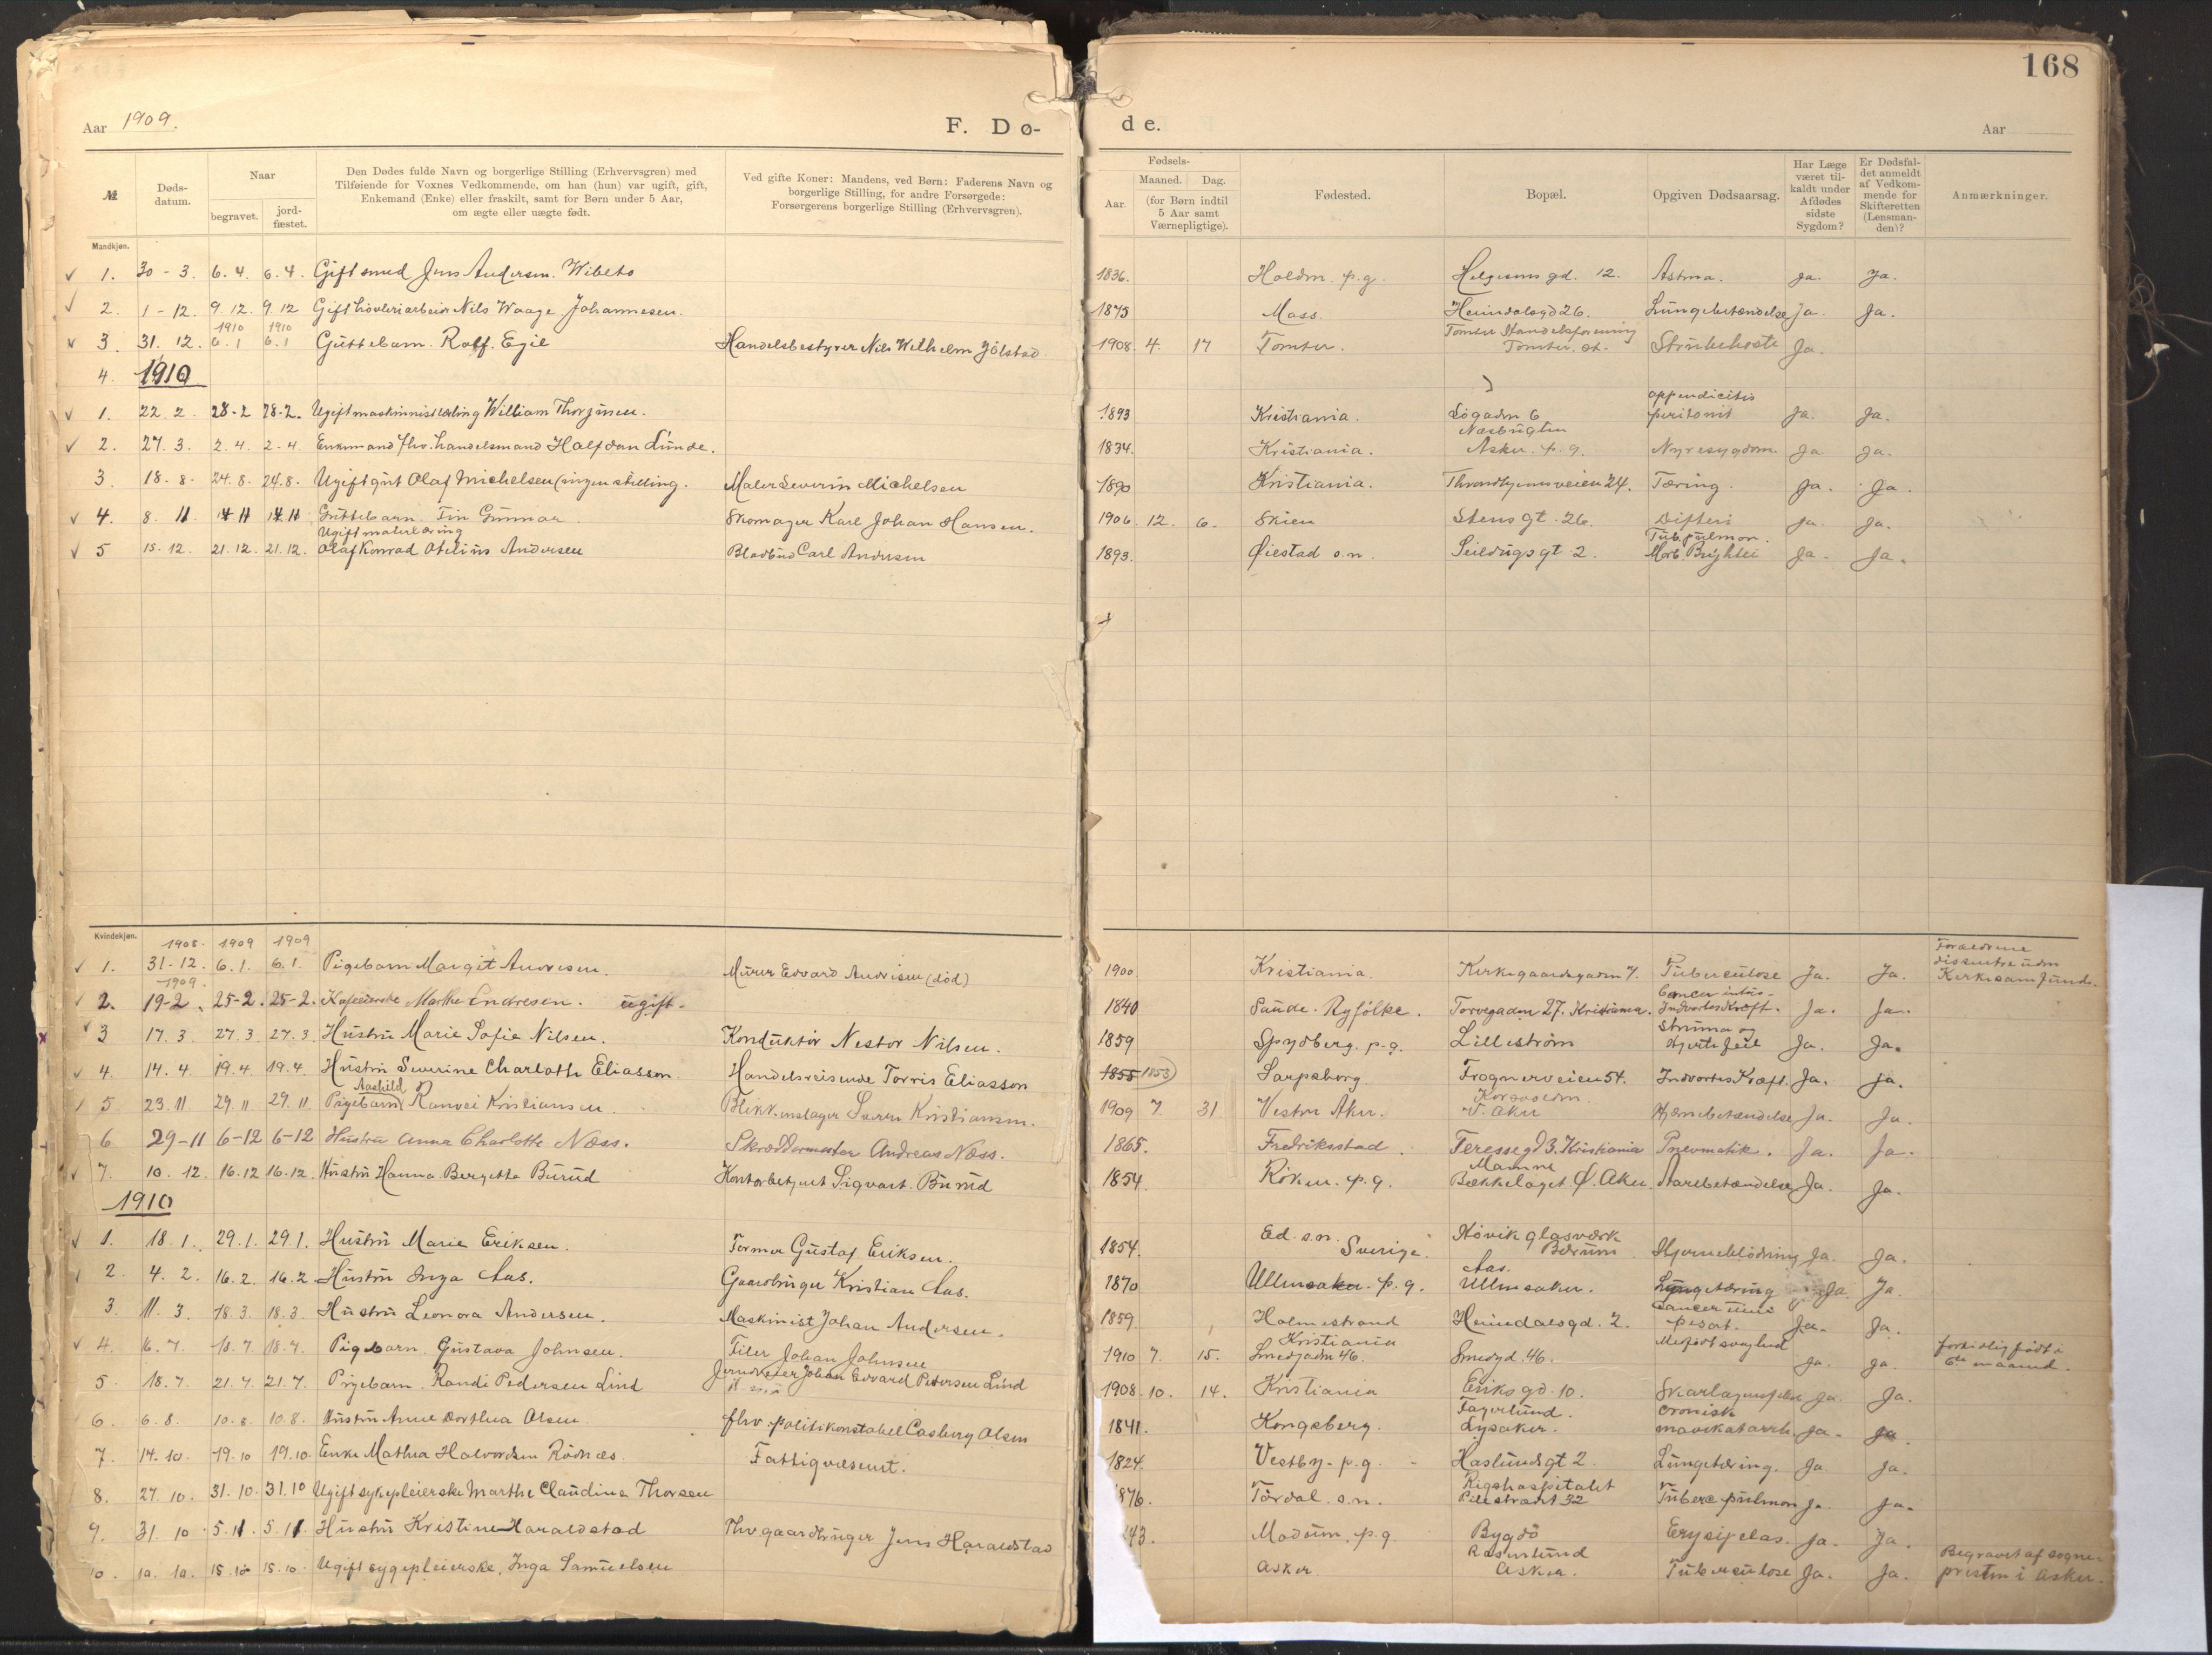 168
Aar 1909.
F. Dø-
de.
Aar
№
Døds-
datum.
Naar
begravet.
jord-
fæstet.
Den Dødes fulde Navn og borgerlige Stilling (Erhvervsgren) med
Tilføiende for Voxnes Vedkommende, om han (hun) var ugift, gift,
Enkemand (Enke) eller fraskilt, samt for Børn under 5 Aar,
om ægte eller uægte født.
Ved gifte Koner: Mandens, ved Børn: Faderens Navn og
borgerlige Stilling, for andre Forsørgede:
Forsørgerens borgerlige Stilling (Erhvervsgren).
Fødsels-
Aar.
Maaned. Dag.
(for Børn indtil
5 Aar samt
Værnepligtige).
Fødested.
Bopæl.
Opgiven Dødsaarsag.
Har Læge
været til-
kaldt under
Afdødes
sidste
Sygdom?
Er Dødsfal-
det anmeldt
af Vedkom-
mende for
Skifteretten
(Lensman-
den)?
Anmærkninger.
Mandkjøn.
1. 30-3. 6.4. 6.4. Gift smed Jens Andersen 1836. p.g. 12. Astma. Ja. Ja.
2. 1-12. 9.12. 9.12 Gift Nils Waage Johannesen. 1875 Moss. Heimdalsgd 26. Lungebetændelse Ja. Ja.
1910 1910
3. 31.12. 6.1 6.1 Guttebarn. Rolf. Egil Handelsbestyrer Nils Wilhelm Jölstad 1908. 4. 17 Tomter. Tomter Handelsforening
Tomter. st. Strubehoste Ja.
4. 1910
1. 22.2. 28-2 28-2. Ugift maskinistlærling William 1893 Kristiania. 6 appendicitis
peritonit Ja. Ja.
2. 27.3. 2.4. 2-4 Enkemand fhv. handelsmand Halfdan Lunde. 1834. Kristiania. Næsbugten
Asker. p.g. Nyresygdom. Ja Ja.
3. 18.8. 24.8. 24.8. Ugift gut Olaf Michelsen (ingen stilling. Maler Severin Michelsen 1890 Kristiania. Throndhjemsveien 24. Tæring. Ja. Ja.
4. 8. 11. 14 11 14 11 Guttebarn Fin Gunnar Skomager Karl Johan Hansen. 1906. 12. 6. Skien Stens gt. 26. Difteri Ja. Ja.
Ugift malerlæring
5 15.12. 21.12. 21.12. Olaf Konrad Otelius Andersen Bladbud Carl Andersen 1893. Øiestad s.n. Seildugsgt 2. Tub. pulmon.
Morb. Brightii Ja. Ja.
Kvindekjøn.
1908. 1909 1909
1. 31-12. 6.1. 6.1. Pigebarn Margit Andresen. Murer Edvard Andresen (död) 1900. Kristiania. Kirkegaardsgaden 7. Tuberculose Ja. Ja. Forældrene
Kirkesamfund.
1909.
2. 19-2. 25-2. 25-2. Marthe Endresen. ugift. 1840 Saude. Ryfylke. Torvegaden 27. Kristiania. Cancer
Indvortes Kræft. Ja. Ja.
3 17.3 27.3 27.3 Hustru Marie Sofie Nilsen. Konduktör Nestor Nilsen. 1859 Spydberg. p.g. Lilleström Struma og
Hjertefeil Ja. Ja.
4. 14.4. 19.4. 19.4. Hustru Severine Charlotte Eliassen. Handelsreisende Torris Eliasson 1855 (1853) Sarpsborg Frognerveien 54. Indvortes Kræft. Ja. Ja.
Aashild
5 23.11 29.11 29.11. Pigebarn Ranvei Kristiansen. Blikkenslager Kristiansen. 1909 7. 31 Vestre Aker.
V. Aker Hjernebetændelse Ja. Ja.
6. 29-11 6-12 6-12 Hustru Anna Charlotte Næss. Skræddermester Andreas Næss. 1865. Fredriksstad. Teressegd 3. Kristiania Ja. Ja.
7. 10.12. 16.12 16.12. Hustru Hanna Bergette Burud Kontorbetjent Sigvart Burud 1854. Röken. p.g.
Bækkelaget. Ø. Aker. Aarebetændelse Ja. Ja.
1910
1. 18.1. 29.1. 29.1. Hustru Marie Eriksen. Former Gustaf Eriksen. 1854. Ed. s.n. Sverige. Hövik glasværk
Bærum Hjerneblödning Ja. Ja.
2. 4.2. 16.2. 16.2. Hustru Inga Aas. Gaardbruger Kristian Aas. 1870 Ullensaker. p.g. Aas.
Ullensaker. Lungetæring Ja Ja.
3. 11.3. 18.3. 18.3. Hustru Leonora Andersen. Maskinist Johan Andersen. 1859. Holmestrand Heimdalsgd. 2. Cancer Ja. Ja.
4. 6.7. 18.7. 18.7. Pigebarn. Gustava Johnsen. Filer Johan Johnsen 1910 7. 15. Kristiania
Smedgaden 46. Smedgd. 46. Medfödt svaghed Ja. Ja. fortidlig födt i
6te maaned.
5 18.7. 21.7. 21.7. Pigebarn. Randi Pedersen Lind Jerndreier Johan Edvard Pedersen Lind 1908. 10. 14. Kristiania Eriks gd. 10. Skarlagensfeber Ja. Ja.
6. 6.8. 10.8. 10.8. Hustru Anne Dorthea Olsen fhv. politikonstabel Casberg Olsen 1841. Kongsberg. Fagerlund.
Lysaker. cronisk
mavekatarrh Ja. Ja.
7. 14.10. 19.10 19.10. Enke Mathea Halvordsen Rödnæs. Fattigvæsenet. 1824. Vestby. p.g. Haslunds gt 2. Lungetæring. Ja. Ja.
8. 27.10. 31.10. 31.10 Ugift sykepleierske Marthe Claudine Thorsen 876. Tördal. s.n. Rigshospitalet
Pilestrædet 32 Tuberc pulmon Ja. Ja.
9. 31.10 5.11. 5.11. Hustru Kristine Haraldstad Fhv gaardbruger Jens Haraldstad 43. Modum. p.g. Bygdö Erysipelas. Ja. Ja.
10. 10.10. 15.10 15.10. Ugift sygepleierske, Inga Samuelsen Asker. Rosenlund
Asker. Tuberculose Ja. Ja. Begravet af sogne-
presten i Asker.